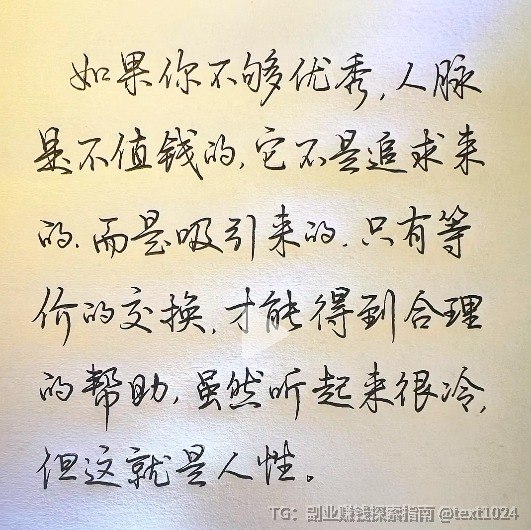 如果你不够优秀，人脉
是不值钱的，它不是追求来
的，而是吸引来的，只有等
价的交换，才能得到合理
的帮助，虽然听起来很冷，
但这就是人性。
TG：副业赚钱探索指南 @text1024